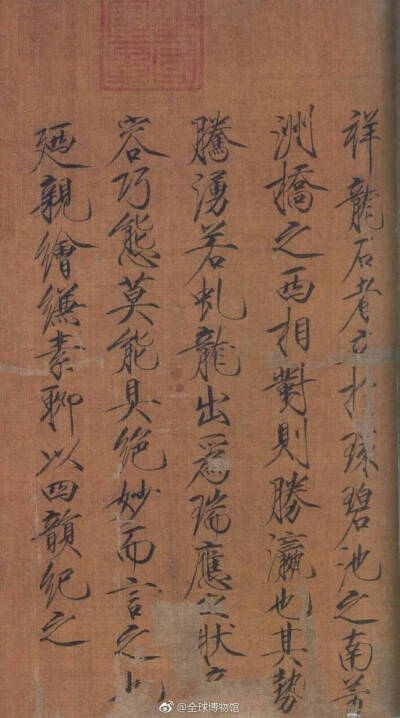 祥龍石者立於環碧池之南芳
洲橋之西相對則勝瀛也其勢
騰湧若虬龍出為瑞應之狀奇
容巧態莫能具絕妙而言之也
廼親繪縑素聊以四韻紀之
@全球博物馆